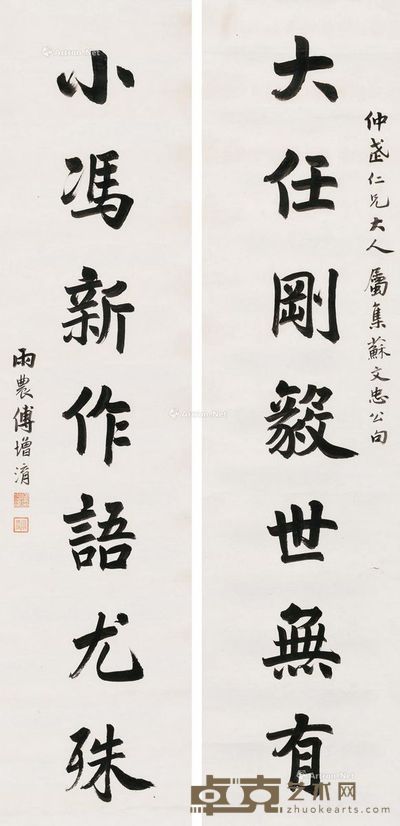 仲武仁兄大人屬集蘇文忠公句
大任剛毅世無有
小馮新作語尤殊
雨農傅增淯
卓克艺术网
www.zhuokearts.com